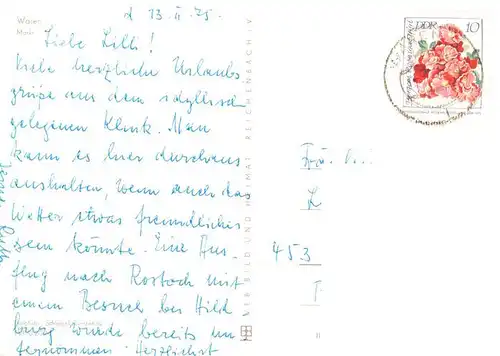 d 13.II.75
Waren
Liebe Lilli!
Viele herzliche Urlaubs
grüße aus dem idyllisch
gelegenen Klink. Man
kann es hier durchaus
aushalten, wenn auch das
Wetter etwas freundlicher
sein könnte. Eine Aus-
flug nach Rostock mit
einem Besuch bei Hild
burg wurde bereits un
ternommen. Herzlichst
VEB BILD UND HEIMAT REICHENBACH i.V.
DDR 10
453